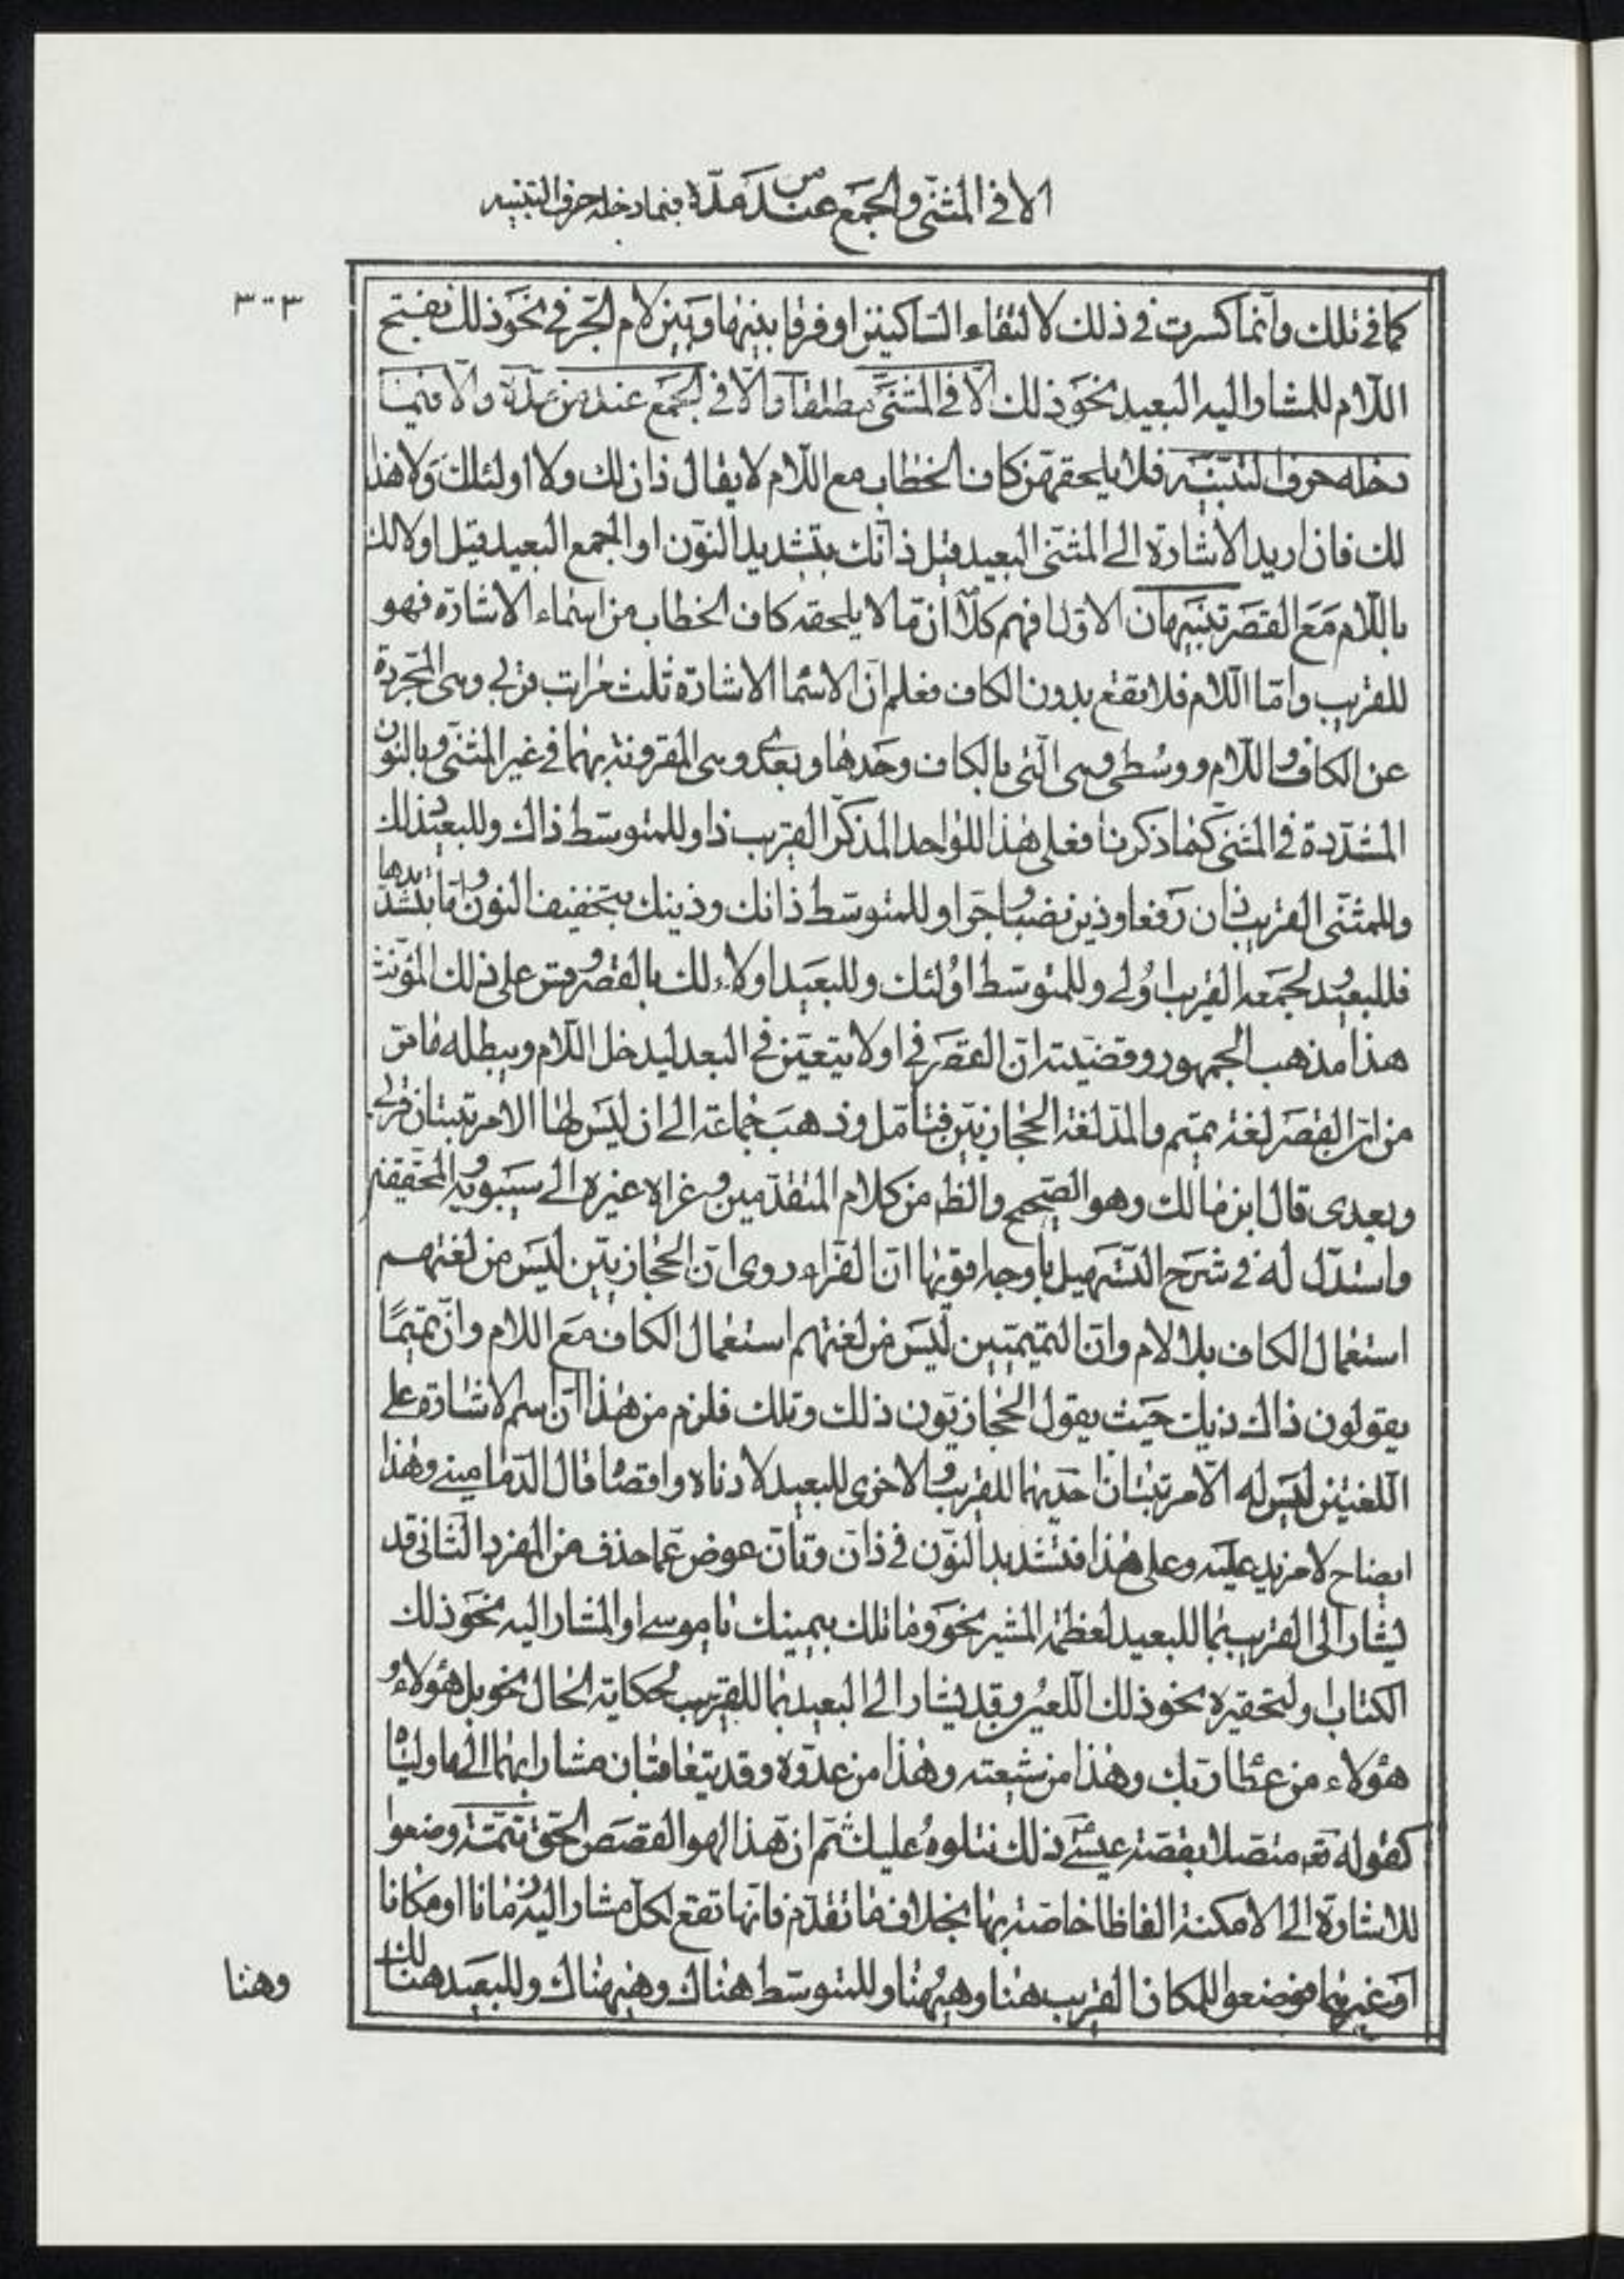 الا في المثنى والجمع عند من مدّه فيما دخله حرف التنبيه
٣٠٣
كما في تلك وانّما كسرت في ذلك لالتقاء الساكنين او فرقا بينها وبين لام الجرّ في نحو ذلك بفتح
اللّام للمشار اليه البعيد نحو ذلك الّا في المثنّى مطلقا والّا في الجمع عند من مدّه والّا فيما
دخله حرف التنبيه فلا يلحقهنّ كاف الخطاب مع اللّام لا يقال ذان لك ولا اولئلك ولا هذا
لك فان اريد الاشارة الى المثنّى البعيد قيل ذانّك بتشديد النّون او الجمع البعيد قيل اولالك
باللّام مع القصر تنبيهان الاوّل افهم كلامه انّ ما لا يلحقه كاف الخطاب من اسماء الاشارة فهو
للقريب وامّا اللّام فلا يقع بدون الكاف فعلم انّ لاسما الاشارة ثلث مراتب قربى وهى المجرّدة
عن الكاف واللّام ووسطى وهى الّتى بالكاف وحدها وبعدى وهى المقرونة بهما في غير المثنّى وبالنون
المشدّدة في المثنّى كما ذكرنا فعلى هذا للواحد المذكّر القريب ذا وللمتوسّط ذاك وللبعيد ذلك
وللمثنّى القريب ذان رفعا وذين نصبا وجرّا وللمتوسّط ذانك وذينك بتخفيف النون وامّا بتشديدها
فللبعيد ولجمعه القريب اولى وللمتوسّط اولئك وللبعيد اولاء لك بالقصر وقس على ذلك المؤنّث
هذا مذهب الجمهور وقضيّته انّ القصر في اولا يتعيّن في البعد ليدخل اللّام ويبطله ما مرّ
من انّ القصر لغة تميم والمدّ لغة الحجازيّين فتأمّل وذهب جماعة الى ان ليس لها الا مرتبتان قربى
وبعدى قال ابن مالك وهو الصحيح والظ من كلام المتقدّمين وعزاه غيره الى سيبويه والمحقّقين
واستدلّ له في شرح التسهيل باوجه اقويها انّ الفرّاء روى انّ الحجازيّين ليس من لغتهم
استعمال الكاف بلا لام وانّ التميميّين ليس من لغتهم استعمال الكاف مع اللام وانّ تميمًا
يقولون ذاك ذيك حيث يقول الحجازيّون ذلك وتلك فلزم من هذا انّ اسم الاشارة على
اللّغتين ليس له الّا مرتبتان احديهما للقريب والاخرى للبعيد لادناه واقصا قال الدّمامينى وهذا
ايضاح لا مزيد عليه وعلى هذا فتشديد النّون في ذانّ وتانّ عوض عمّا حذف من المفرد الثانى قد
يشار الى القريب بما للبعيد لعظمة المشير نحو وما تلك بيمينك يا موسى او المشار اليه نحو ذلك
الكتاب او لتحقيره نحو ذلك اللعين وقد يشار الى البعيد بما للقريب لحكاية الحال نحو بل هؤلاء و
هؤلاء من عطا ربّك وهذا من شيعته وهذا من عدوّه وقد يتعاقبان مشارا بهما الى ما ولياه
كقوله تع متصلا بقصّة عيسى ذلك نتلوه عليك ثمّ انّ هذا لهو القصص الحقّ تتمّة وضعوا
للاشارة الى الامكنة الفاظا خاصّة بها بخلاف ما تقدّم فانّها تقع لكلّ مشار اليه زمانا او مكانا
او غيرهما فوضعوا للمكان القريب هنا وهيهنا وللمتوسّط هناك وهيهناك وللبعيد هنالك
وهنا